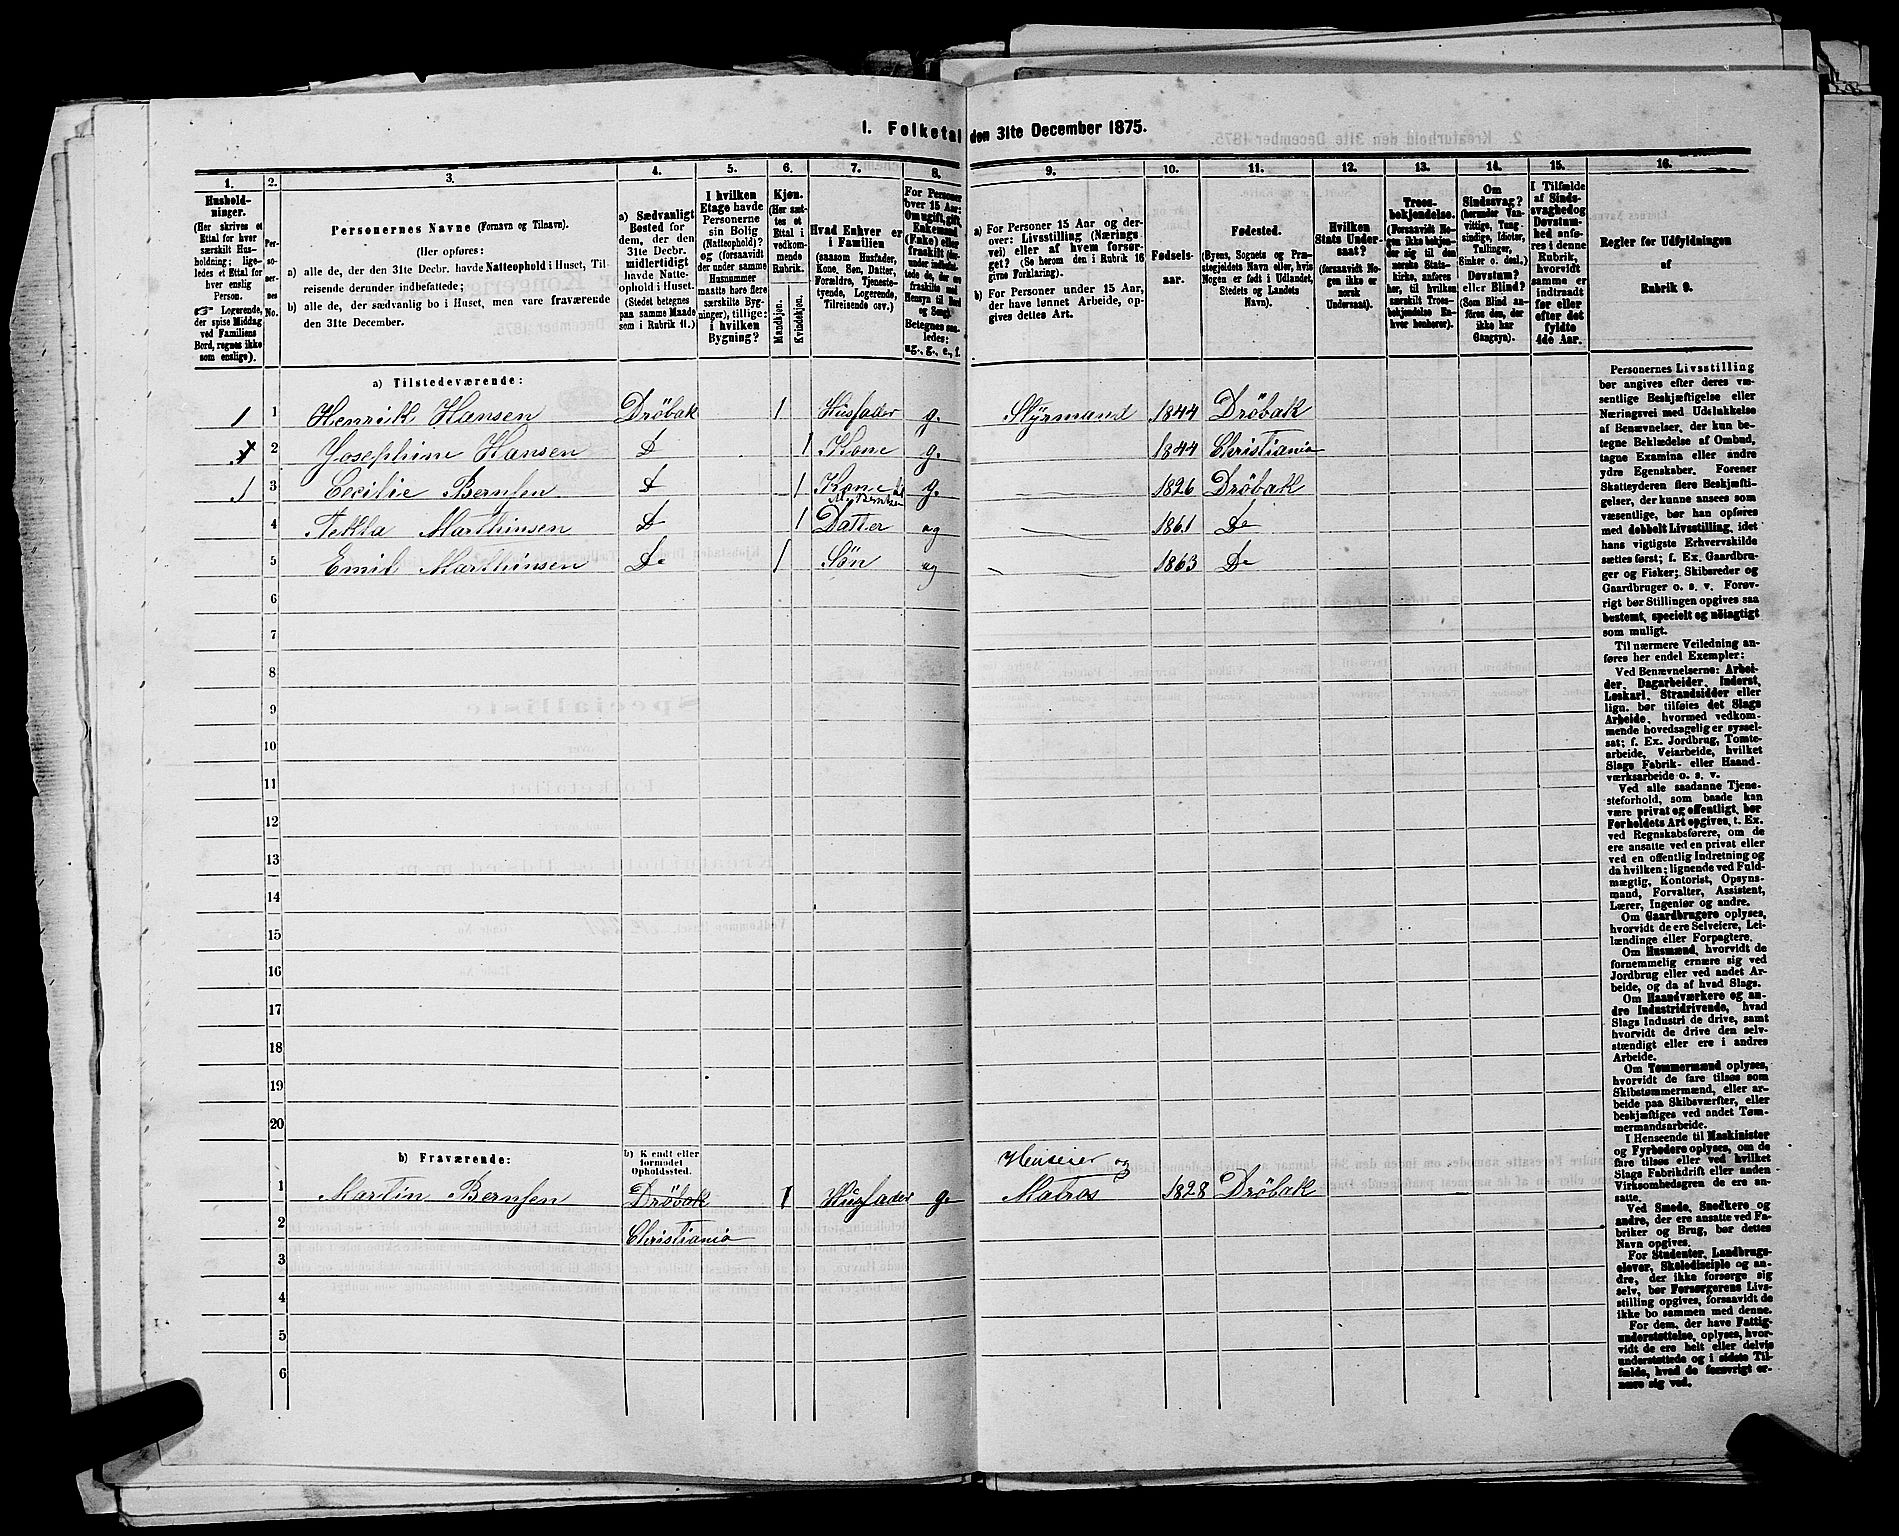 1. Folketal den 31te December 1875.
1.
2.
3.
4.
5.
6.
7.
8.
9.
10.
11.
12.
13.
14.
15.
16.
Husholdninger.
(Her skrives et Ettal for hver særskilt Husholdning; ligeledes et Ettal for hver enslig Person.
Logerende, der spise Middag ved Familiens Bord, regnes ikke som enslige).
Personernes No.
Personernes Navne (Fornavn og Tilnavn).
(Her opføres:
a) alle de, der den 31te Decbr. havde Natteophold i Huset, Tilreisende derunder indbefattede;
b) alle de, der sædvanlig bo i Huset, men vare fraværende den 31te December.
a) Sædvanligt Bosted for dem, der den 31te Decbr. midlertidigt havde Natteophold i Huset.
(Stedet betegnes paa samme Maade som i Rubrik 11.)
I hvilken Etage havde Personerne sin Bolig (Natteophold)? og (forsaavidt der under samme Husnummer matte høre flere særskilte Bygninger), tillige: i hvilken Bygning?
Kjøn.
(Her sættes et Ettal i vedkommende Rubrik.
Mandkjøn.
Kvindekjøn.
Hvad Enhver er i Familien
(saasom Husfader, Kone, Søn, Datter, Forældre, Tjenestetyende, Logerende, Tilreisende osv.)
For Personer over 15 Aar: Om ugift, gift, Enkemand (Enke) eller fraskilt
Betegnes saaledes: ug., g., e., f.
a) For Personer 15 Aar og derover: Livsstilling (Næringsvei) eller af hvem forsørget? (Se herom den i Rubrik 16 givne Forklaring).
b) For Personer under 15 Aar, der have lønnet Arbeide, opgives dettes Art.
Fødselsaar.
Fødested.
(Byens, Sognets og Præstegjeldets Navn eller, hvis Nogen er født i Udlandet, Stedets og Landets Navn).
Hvilken Stats Undersaat?
(forsaavidt Nogen ikke er norsk Undersaat).
Troesbekjendelse.
(Forsaavidt Nogen ikke bekjender sig til den norske Statskirke, anføres her, til hvilket særskilt Troesbekjendelse Enhver henhører).
Om Sindssvag?
(herunder Vanvittige, Tungsindige, Idioter, Tullinger, Sinker o. desl.)
Døvstum? eller Blind?
(Som Blind anføres den, der ikke har Gangsyn).
I Tilfælde af Sindssvaghed og Døvstumhed anføres i denne Rubrik, hvorvidt samme er indtraadt før eller efter det fyldte 4de Aar.
Regler for Udfyldningen
af
Rubrik 9.
a) Tilstedeværende:
1 1 Henrik Hansen Dröbak 1 Husfader g. Styrmand 1844 Dröbak
2 Josephine Hansen D 1 Kone g. 1844 Christiania
1 3 Cecilie Bernsen D 1 Kone g. 1826 Dröbak
4 Tekla Marthinsen D 1 Datter ug 1861 De
5 Emil Marthinsen De 1 Sön ug 1863 De
6
7
8
9
10
11
12
13
14
15
16
17
18
19
20
b) Fraværende:
b) Kjendt eller formodet Opholdssted.
1 Martin Bernsen Dröbak 1 Husfader g. og Matros 1828 Dröbak
2 Christiania
3
4
5
6
Personernes Livsstilling
bør angives efter deres væsentlige
Beskjæftigelse eller
Næringsvei med Udelukkelse
af Benævnelser, der kun betegne
Beklædelse af Ombud,
tagne Examina eller andre
ydre Egenskaber. Forener
Skatteyderen flere Beskjæftigelser,
der kunne ansees som
væsentlige, bør han opføres
med dobbelt Livsstilling, idet
hans vigtigste Erhvervskilde
sættes først; f. Ex. Gaardbruger
og Fisker; Skibsreder og
Gaardbruger o. s. v. Forøvrigt
bør Stillingen opgives saa
bestemt, specielt og nøiagtigt
som muligt.
Til nærmere Veiledning anføres
her endel Exempler:
Ved Benævnelserne: Arbeider,
Dagarbeider, Inderst,
Løskarl, Strandsidder eller
lign. bør tilføies det Slags
Arbeide, hvormed vedkommende
hovedsagelig er sysselsat;
f. Ex. Jordbrug, Tomtearbeide,
Veiarbeide, hvilket
Slags Fabrik- eller Haandværksarbeide
o. s. v.
Ved alle saadanne Tjenesteforhold,
som baade kan
være privat og offentligt, bør
Forholdets Art opgives, t. Ex.
ved Regnskabsførere, om de
ere ansatte ved en privat eller
ved en offentlig Indretning og
da hvilken; lignende ved Fuldmægtig,
Kontorist, Opsynsmand,
Forvalter, Assistent,
Lærer, Ingeniør og andre.
Om Gaardbrugere oplyses,
hvorvidt de ere Selveiere, Leilændinge
eller Forpagtere.
Om Husmænd, hvorvidt de
fornemmelig ernære sig ved
Jordbrug eller ved andet Arbeide,
og da af hvad Slags.
Om Haandværkere og andre
Industridrivende, hvad
Slags Industri de drive, samt
hvorvidt de drive den selvstændigt
eller ere i andres
Arbeide.
Om Tømmermænd oplyses,
hvorvidt de fare tilsøs som
Skibstømmermænd, eller arbeide
paa Skibsværfter, eller
beskjæftiges ved andet Tømmermandsarbeide.
I Henseende til Maskinister
og Fyrbødere oplyses, om de
fare tilsøs eller ved hvilket
Slags Fabrikdrift eller anden
Virksomhedsgren de ere ansatte.
Ved Smede, Snedkere og
andre, der ere ansatte ved Fabriker
og Brug, bør dettes
Navn opgives.
For Studenter, Landbrugselever,
Skoledisciple og andre,
der ikke forsørge sig
selv, bør Forsørgerens Livsstilling
opgives, forsaavidt de
ikke bo sammen med denne.
For dem, der have Fattigunderstøttelse,
oplyses, hvorvidt
de ere helt eller delvis
understøttede og i sidste Tilfælde,
hvad de forøvrigt ernære
sig ved.